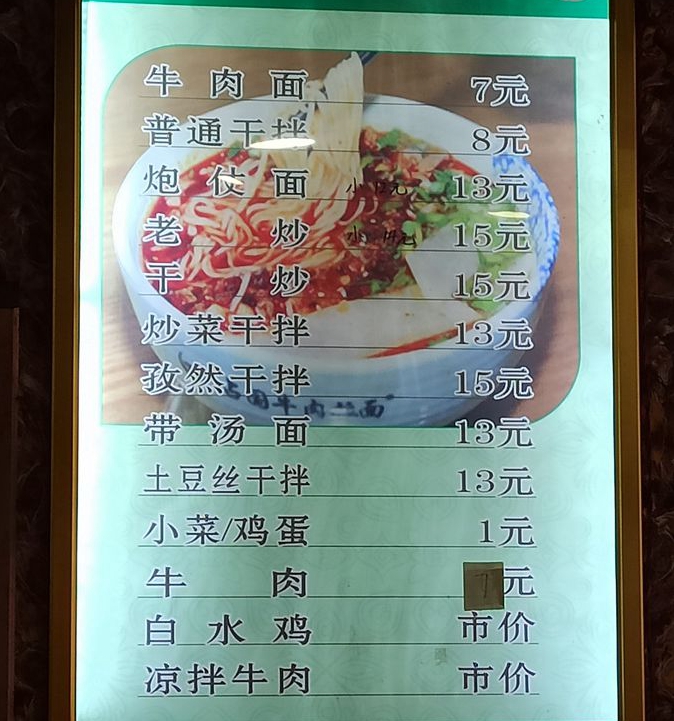 牛肉面 7元
普通干拌 8元
炮仗面 小 12元 13元
老炒 小 14元 15元
干炒 15元
炒菜干拌 13元
孜然干拌 15元
占国牛肉拉面
带汤面 13元
土豆丝干拌 13元
小菜/鸡蛋 1元
牛肉 7元
白水鸡 市价
凉拌牛肉 市价